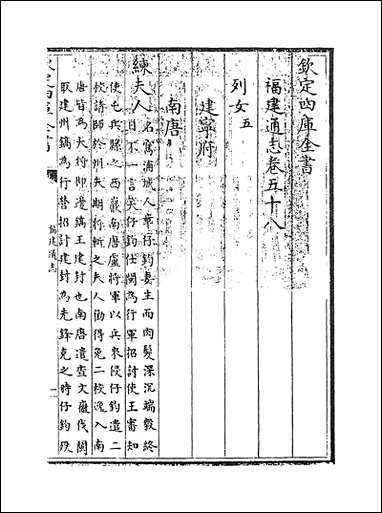 欽定四庫全書
福建通志卷五十八
列女五
建寧府
南唐
練夫人名寯浦城人章仔鈞妻生而肉髮深沉端毅終
日不一言笑仔鈞仕閩為行軍招討使王審知
使屯兵縣之西巖南唐盧將軍以兵來侵仔鈞遣二
校請師於州失期將斬之夫人勸得免二校逸入南
唐皆為大將即邊鎬王建封也南唐遣查文徽伐閩
取建州鎬為行營招討建封為先鋒克之時仔鈞歿
欽定四庫全書
福建通志
一